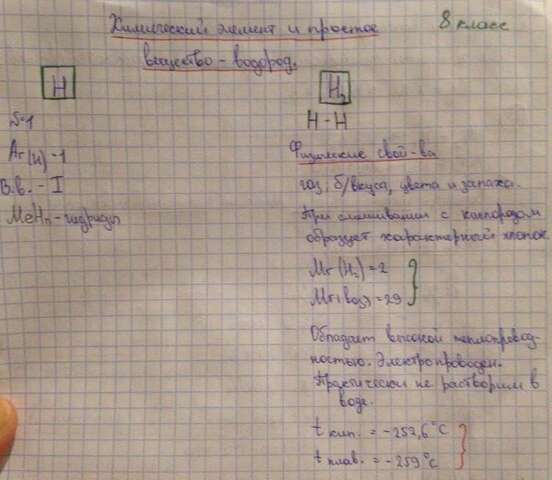 Химический элемент и простое
8 класс
вещество - водород.
H
H₂
H - H
№1
Ar(H) = 1
В.в. - I
MeHn - гидриды
Физические свой-ва
газ, б/вкуса, цвета и запаха.
При смешивании с кислородом
образует характерный хлопок.
Mr(H₂) = 2
Mr(воз) = 29
Обладает высокой теплопровод-
ностью. Электропроводен.
Практически не растворим в
воде.
t кип. = -252,6°C
t плав. = -259°C